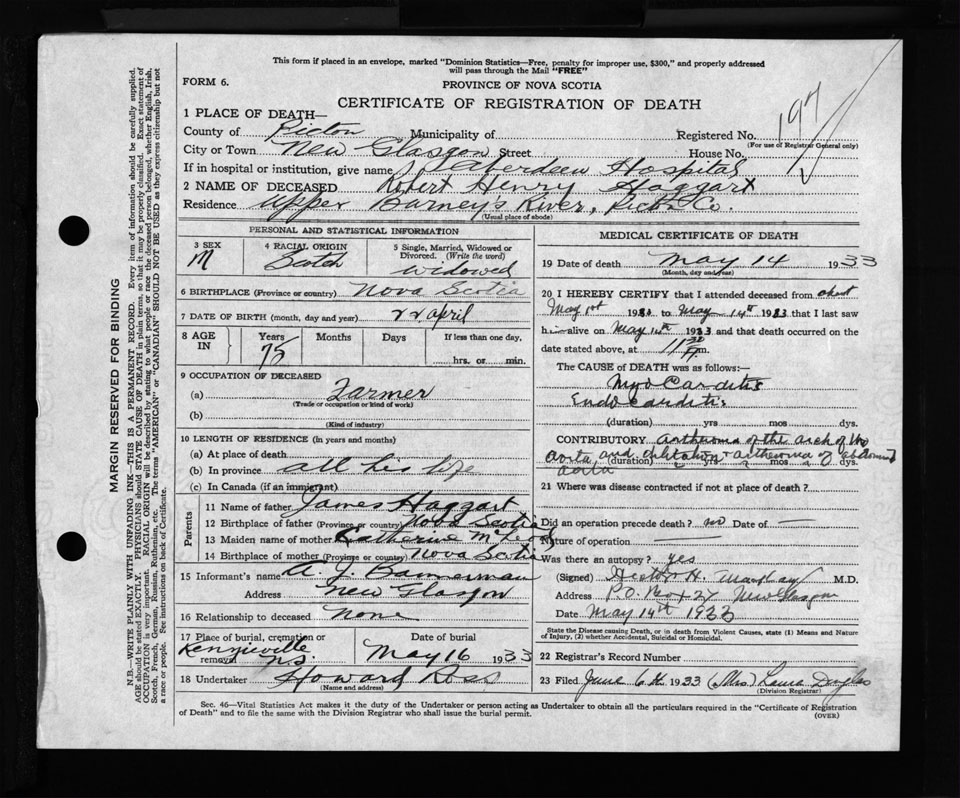 This form if placed in an envelope, marked "Dominion Statistics—Free, penalty for improper use, $300," and properly addressed
will pass through the Mail "FREE"
FORM 6.
PROVINCE OF NOVA SCOTIA
CERTIFICATE OF REGISTRATION OF DEATH
1 PLACE OF DEATH—
County of Pictou Municipality of Registered No. 197
(For use of Registrar General only)
City or Town New Glasgow Street House No.
If in hospital or institution, give name Aberdeen Hospital
2 NAME OF DECEASED Robert Henry Haggart
Residence Upper Barneys River, Pictou Co.
(Usual place of abode)
PERSONAL AND STATISTICAL INFORMATION
3 SEX M
4 RACIAL ORIGIN Scotch
5 Single, Married, Widowed or Divorced. (Write the word) widowed
6 BIRTHPLACE (Province or country) Nova Scotia
7 DATE OF BIRTH (month, day and year) 22 April
8 AGE IN Years 75 Months Days If less than one day, hrs. or min.
9 OCCUPATION OF DECEASED
(a) Farmer
(Trade or occupation or kind of work)
(b)
(Kind of industry)
10 LENGTH OF RESIDENCE (in years and months)
(a) At place of death
(b) In province all his life
(c) In Canada (if an immigrant)
Parents
11 Name of father James Haggart
12 Birthplace of father (Province or country) Nova Scotia
13 Maiden name of mother Katherine McLeod
14 Birthplace of mother (Province or country) Nova Scotia
15 Informant's name A. J. Bannerman
Address New Glasgow
16 Relationship to deceased None
17 Place of burial, cremation or removal Kenzieville N.S.
Date of burial May 16 1933
18 Undertaker Howard Ross
(Name and address)
MEDICAL CERTIFICATE OF DEATH
19 Date of death May 14 1933
(Month, day and year)
20 I HEREBY CERTIFY that I attended deceased from about
May 1st 1933 to May 14th 1933 that I last saw
h alive on May 1933 and that death occurred on the
date stated above, at 11 m.
The CAUSE OF DEATH was as follows:—
Myo Carditis
Endo Carditis
(duration) yrs mos dys.
CONTRIBUTORY atheroma of the arch of the
aorta and atheroma of abdominal
aorta
(duration) yrs mos dys.
21 Where was disease contracted if not at place of death?
Did an operation precede death? no Date of —
Nature of operation —
Was there an autopsy? yes
(Signed) Hector H. M.D.
Address P.O. Box New Glasgow
Date May 14th 1933
State the Disease causing Death, or in death from Violent Causes, state (1) Means and Nature
of Injury, (2) whether Accidental, Suicidal or Homicidal.
22 Registrar's Record Number
23 Filed June 6th 1933 (Mrs) Laura Douglas
(Division Registrar)
Sec. 46—Vital Statistics Act makes it the duty of the Undertaker or person acting as Undertaker to obtain all the particulars required in the "Certificate of Registration
of Death" and to file the same with the Division Registrar who shall issue the burial permit.
(OVER)
MARGIN RESERVED FOR BINDING
N.B.—WRITE PLAINLY WITH UNFADING INK—THIS IS A PERMANENT RECORD. Every item of information should be carefully supplied.
AGE should be stated EXACTLY. PHYSICIANS should STATE CAUSE OF DEATH in plain terms, so that it may be properly classified. Exact statement of
OCCUPATION is very important. RACIAL ORIGIN will be described by stating to what people or race the deceased person belonged, whether English, Irish,
Scotch, French, German, Russian, Ruthenian, etc. The terms "AMERICAN" or "CANADIAN" SHOULD NOT BE USED as they express citizenship but not
a race or people. See instructions on back of Certificate.